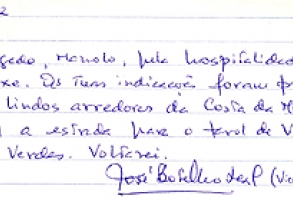 2
Manolo, pela hospitalidade
xo. Os teus indicações foram
lindos arredores da Costa da M
a estrada para o farol de V
Verdes. Voltarei.
José Botelho Leal (Vi